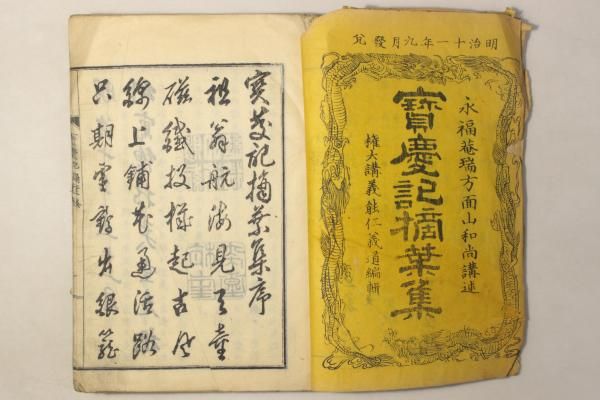 明治十一年九月發兌
永福菴瑞方面山和尚講述
寶慶記摘葉集
權大講義能仁義道編輯
寶慶記摘葉集序
祖翁航海見天童
磁鐵投様起古風
線上鋪花通活路
只期雲鶴出銀籠